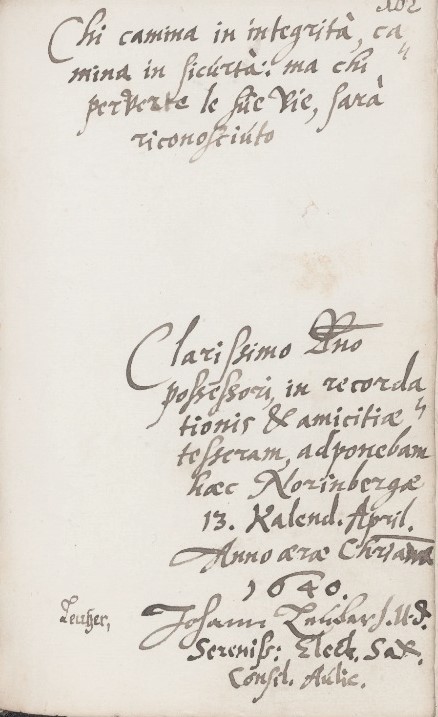 102
Chi camina in integrità, ca„
mina in sicurtà: ma chi
perverte le sue vie, sarà
riconosciúto
Clarissimo Dño
possessori, in recorda„
tionis & amicitiæ
tesseram, adponebam
hæc Norinbergæ
13. Kalend. April.
Anno æræ Christianæ
1640.
Johann J.U.D.
Sereniss: Elect. Sax.
Consil. Aúlic.